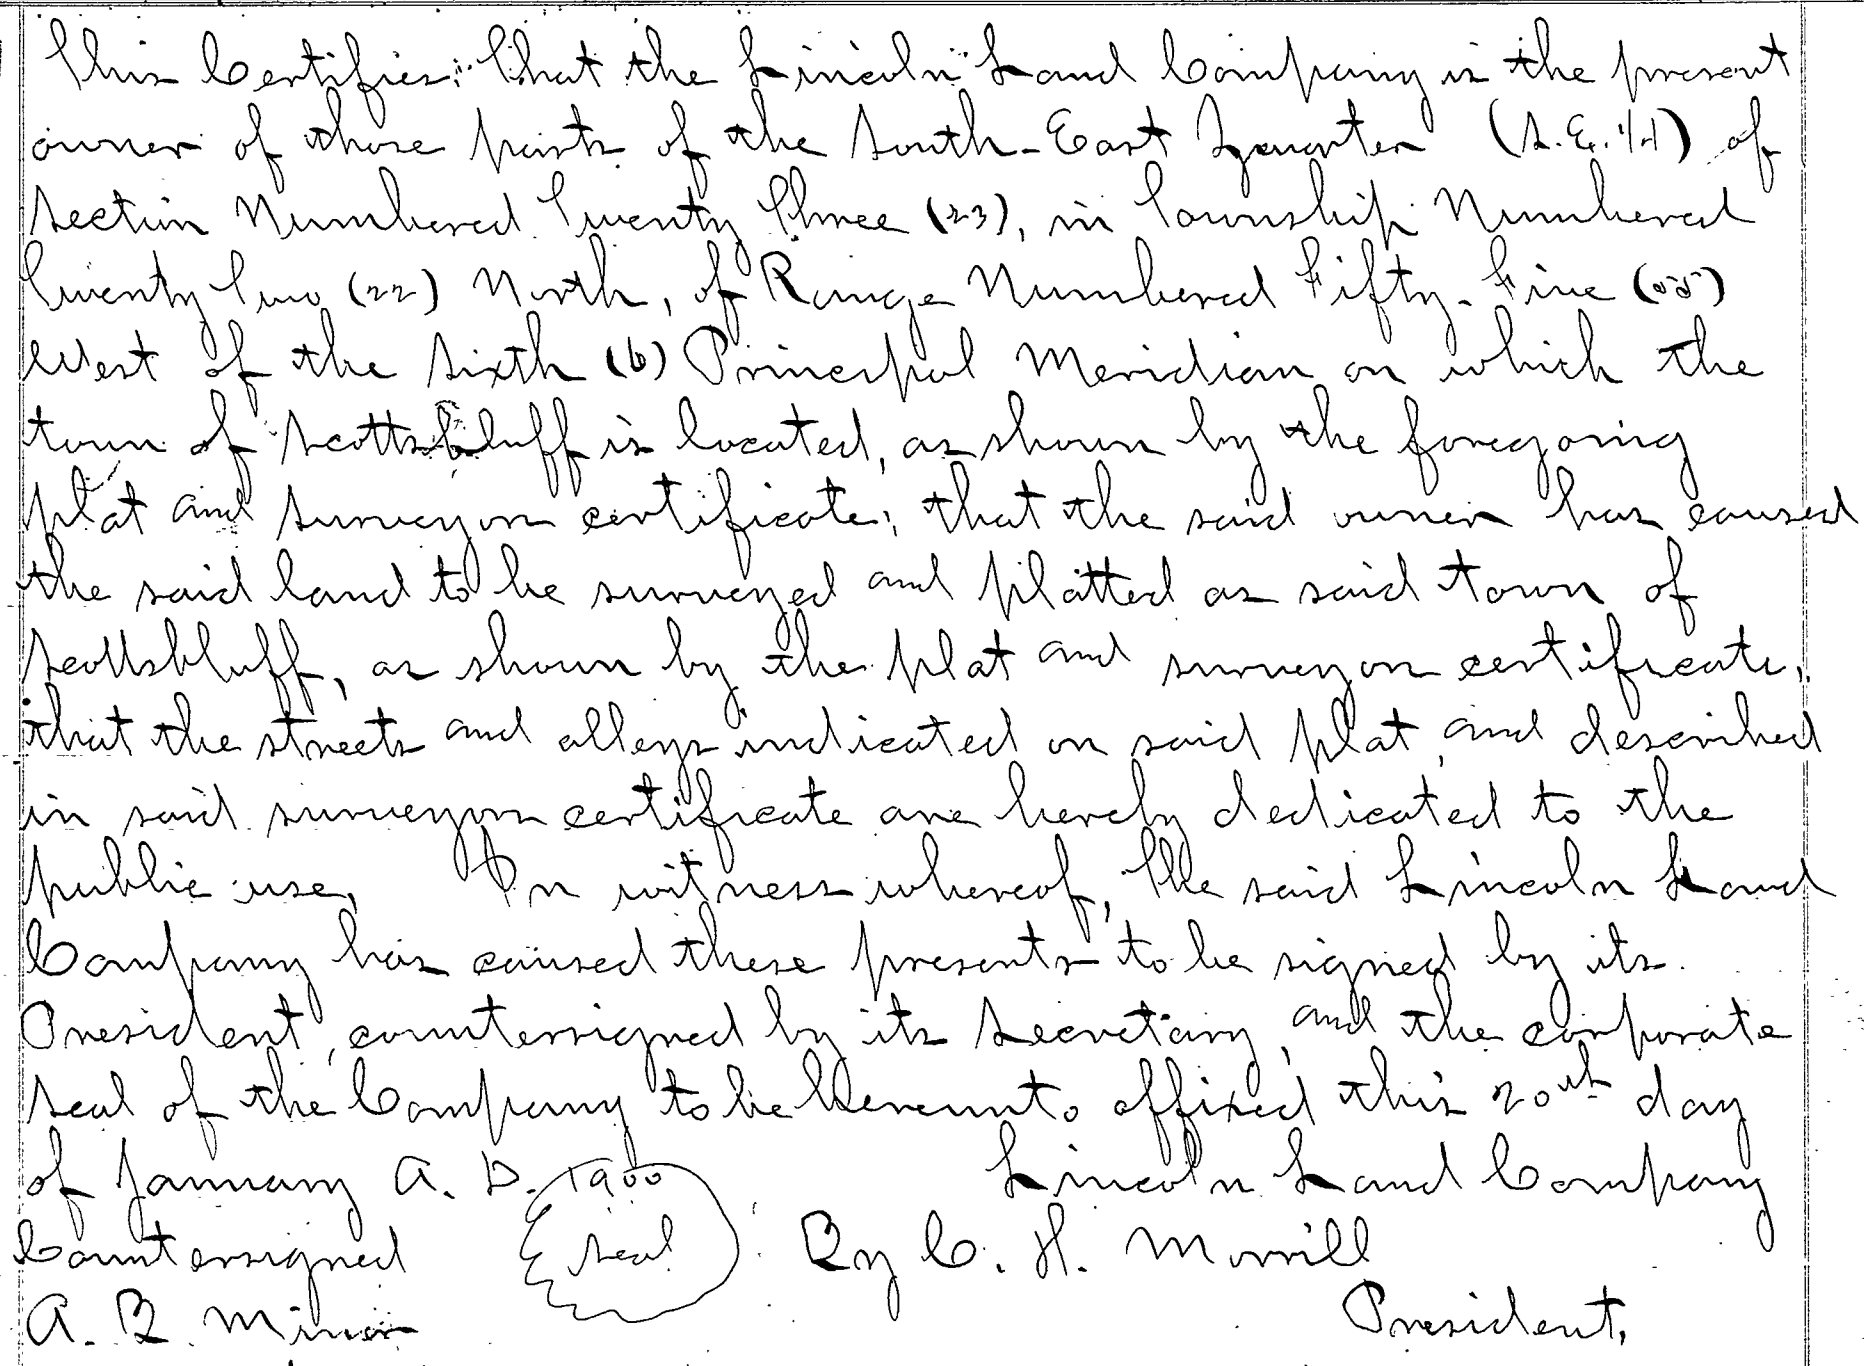 This Certifies: That the Lincoln Land Company is the present
owner of those parts of the South-East Quarter (S.E. 1/4) of
Section Numbered Twenty Three (23), in Township Numbered
Twenty Two (22) North, of Range Numbered Fifty-Five (55)
West of the Sixth (6) Principal Meridian on which the
town of Scottsbluff is located, as shown by the foregoing
plat and surveyors certificate; that the said owner has caused
the said land to be surveyed and platted as said town of
Scottsbluff, as shown by the plat and surveyors certificate,
that the streets and alleys indicated on said plat, and described
in said surveyors certificate are hereby dedicated to the
public use, In witness whereof, The said Lincoln Land
Company has caused these presents to be signed by its
President, countersigned by its Secretary, and the corporate
seal of the Company to be Hereunto affixed this 20th day
of January A. D. 1900 Lincoln Land Company
Countersigned Seal By C. H. Morrill
A. B. Minor President,